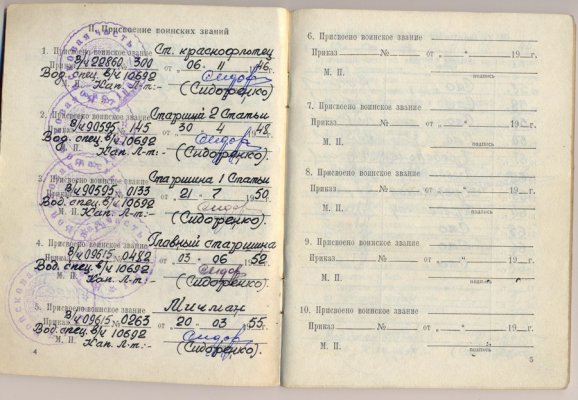 II. Присвоение воинских званий
1. Присвоено воинское звание Ст. краснофлотец
Приказ В/ч 22860 № 300 от „06" 11 1946 г.
Вод. спец. В/ч 10692
М. П. Кап. Л-т:- (Сидоренко).
2. Присвоено воинское звание Старшина 2 Статьи
Приказ В/ч 90595 № 145 от „30" 4 1948 г.
Вод. спец. В/ч 10692
М. П. Кап. Л-т:- (Сидоренко).
3. Присвоено воинское звание Старшина 1 Статьи
Приказ В/ч 90595 № 0133 от „21" 7 1950 г.
Вод. спец. В/ч 10692
М. П. Кап. Л-т:- (Сидоренко).
4. Присвоено воинское звание Главный старшина
Приказ В/ч 09615 № 0482 от „03" 06 1952 г.
Вод. спец. В/ч 10692
М. П. Кап. Л-т:- (Сидоренко).
5. Присвоено воинское звание Мичман
Приказ В/ч 09615 № 0263 от „20" 03 1955 г.
Вод. спец. В/ч 10692
М. П. Кап. Л-т:- (Сидоренко).
4
6. Присвоено воинское звание
Приказ № от „ " 19 г.
М. П. подпись
7. Присвоено воинское звание
Приказ № от „ " 19 г.
М. П. подпись
8. Присвоено воинское звание
Приказ № от „ " 19 г.
М. П. подпись
9. Присвоено воинское звание
Приказ № от „ " 19 г.
М. П. подпись
10. Присвоено воинское звание
Приказ № от „ " 19 г.
М. П. подпись
5